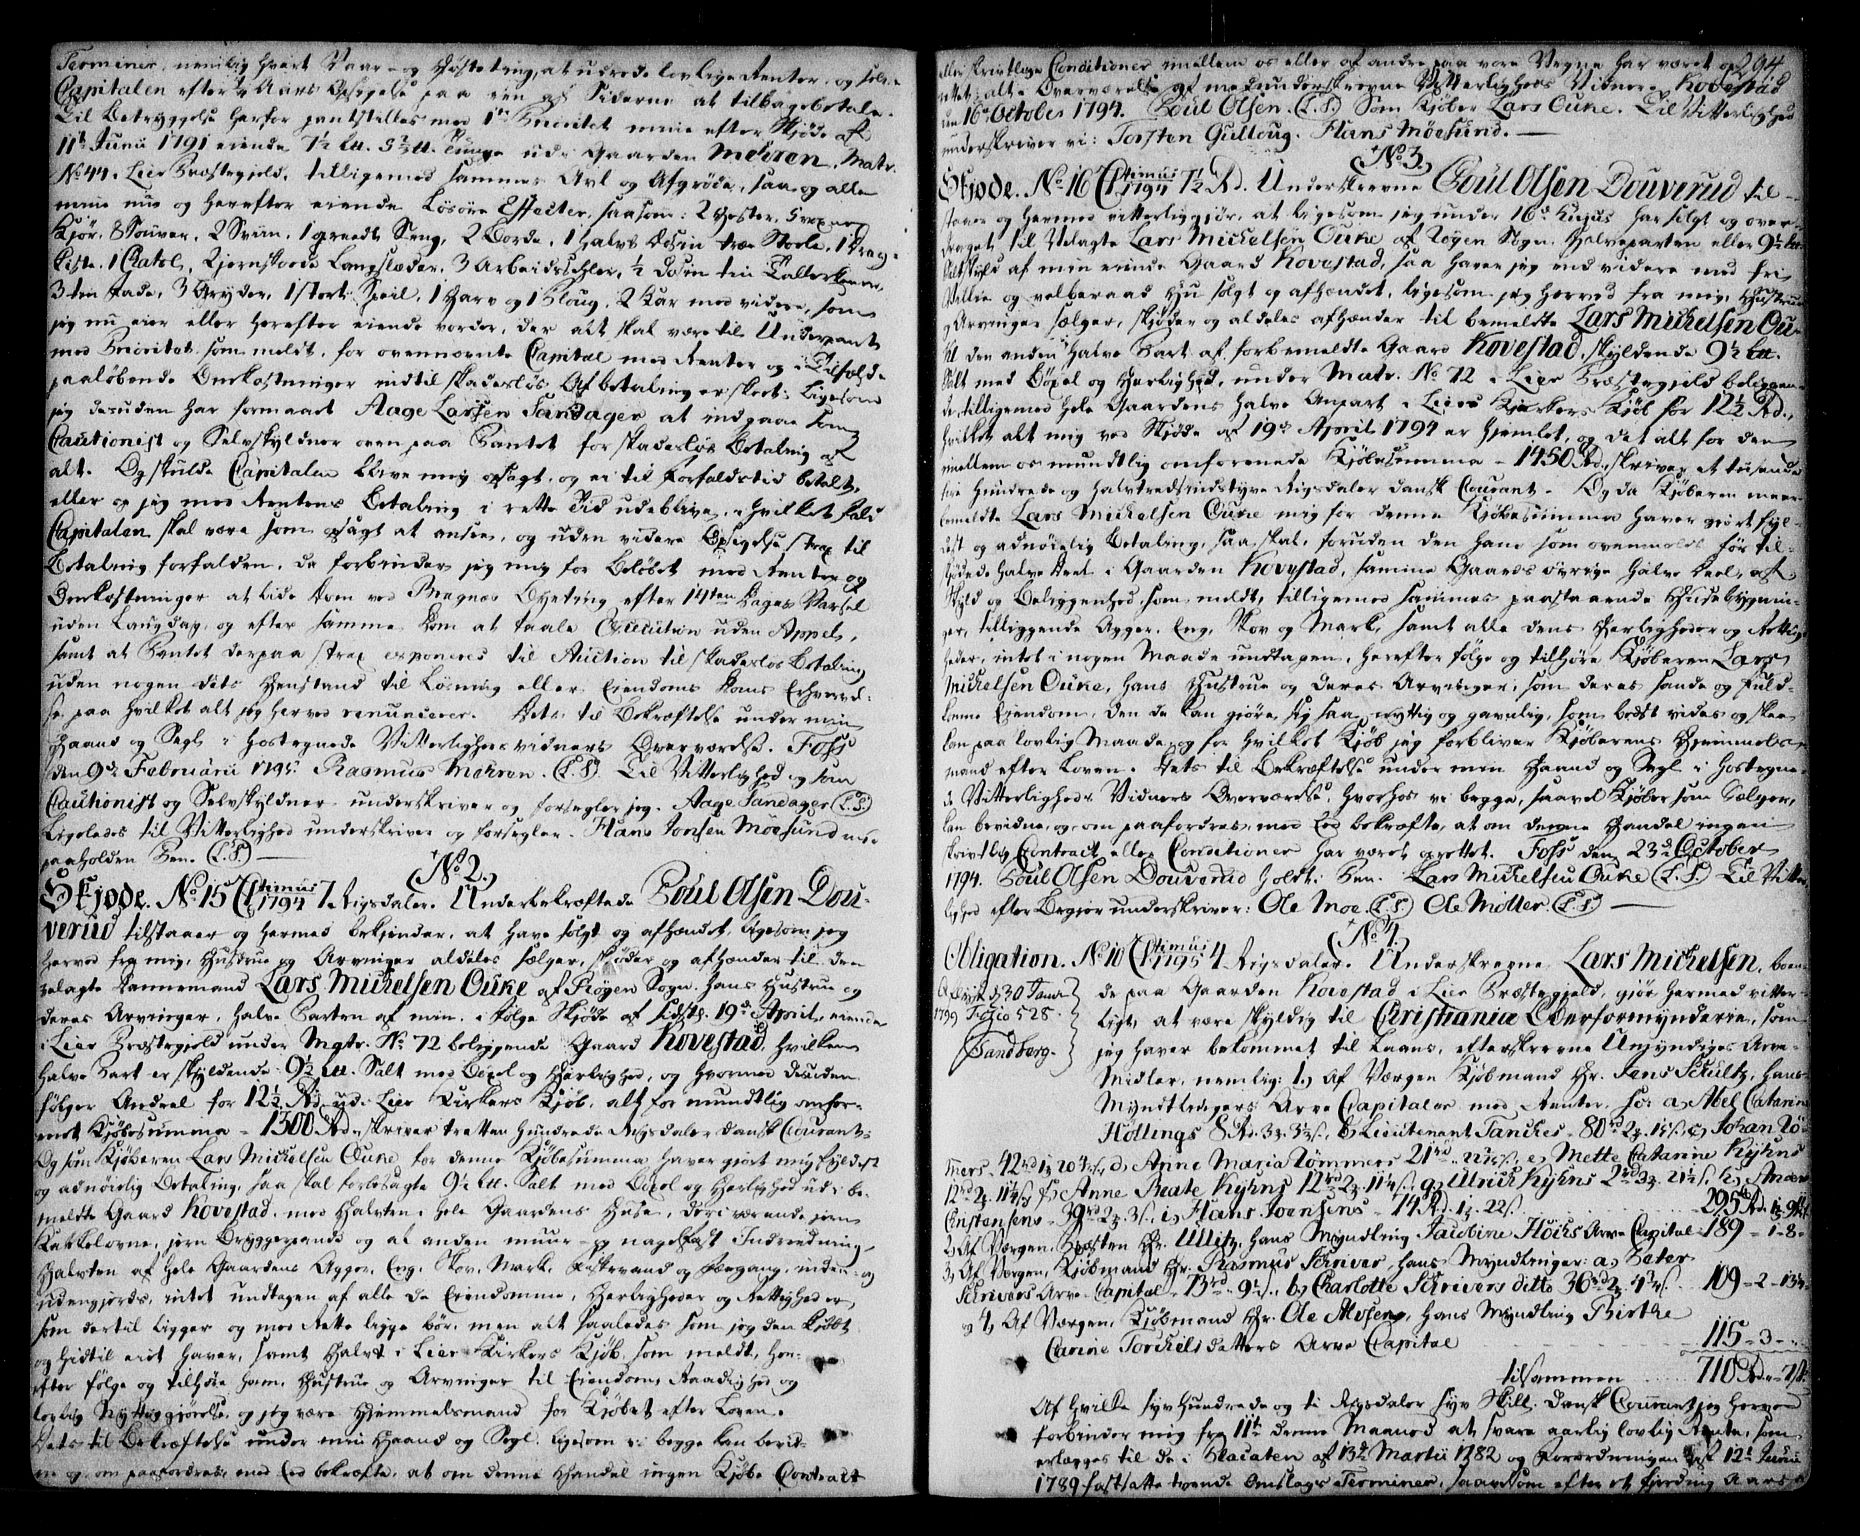 Terminer, nemlig hvert Vaar- og Høsteting, at udrede lovlige Renter, og
Capitalen efter ½ Aars Opsigelse paa een af Siderne at tilbagebetale.
Til Betryggelse herfor pantsættes med 1te Prioritet min efter Skjøde af
11te Junii 1791 eiende 7½ Lt. 3¾ Lt. Tunge udi Gaarden Mehren, Matr.
No 44. Lier Præstegjeld, tilligemed sammes Avl og Afgrøde, saa og alle
mine nu og herefter eiende Løsøre Effecter, saasom: 2 Hester,
Kjør, 8 Souver, 2 Sviin, 1 Seng, 2 Borde, 1 halvt Dosin træ Stole, 1 Drag-
kiste, 1 Chatol, Langslæder, 3 Arbeidsseler, ½ Dosin tin Tallerkener,
3 tin Fade, 3 Gryder, 1 stort Speil, 1 Harv og 1 Ploug, 2 Kar med videre, som
jeg nu eier eller herefter eiende vorder, der alt skal være til Underpant
med Prioritet, som meldt, for ovennævnte Capital med Renter og i Tilfælde
paaløbende Omkostninger indtil skadesløs Afbetaling er skeet; Ligesom
jeg desuden har formaaet Aage Larsen Sandager at indgaae som
Cautionist og Selvskyldner oven paa Pantet for skadesløs Betaling af
alt. Og skulde Capitalen blive mig opsagt, og ei til Forfaldstid betalt,
eller og jeg med Rentens Betaling i rette Tid udeblive, i hvilket Fald
Capitalen skal være som opsagt at ansee, og uden videre Opsigelse strax til
Betaling forfalden, da forbinder jeg mig for Beløbet med Renter og
Omkostninger at lide Dom ved Bragnæs Byeting efter 14ten Dages Varsel
uden Langdag, og efter samme Dom at taale Execution uden Appel,
samt at Pantet derpaa strax exponeres til Auction til skadesløs Betaling
uden nogen dets Henstand til Løsning eller Eiendoms Doms Erhverd-
se paa hvilket alt jeg herved renuncerer. Dets til Bekræftelse under min
Haand og Segl i hostegnede Vitterligheds vidners Overværelse. Foss
den 9de Februarii 1795. Rasmus Mehren. (L.S.) Til Vitterlighed og som
Cautionist og Selvskyldner underskriver og forsegler jeg. Aage Sandager (L.S.)
Ligeledes til Vitterlighed underskriver og forsegler. Hans Jonsen Moesund
paaholden Pen. (L.S.)
No 2.
Skjøde. No 15 Ctimus 1794 7 Rigsdaler. Underbekræftede Poul Olsen Dou-
verud tilstaaer og hermed bekjender, at have solgt og afhændet, ligesom jeg
herved fra mig, Hustrue og Arvinger aldeles sælger, skjøder og afhænder til den
velagte Dannemand Lars Michelsen Ouke af Røgen Sogn, hans Hustrue og
deres Arvinger, halve Parten af min, i følge Skjøde af sidstl. 19de April, eiende
i Lier Præstegjeld under Matr. No 72 beliggende Gaard Kovestad, hvilken
halve Part er skyldende 9½ Lt. Salt med Bøxel og Herlighed, og hvormed desuden
følger Andeel for 12½ Rd. udi Lier Kirkers Kjøb, alt for mundtlig omfor-
enet Kjøbesumma - 1300 Rd. skriver tretten Hundrede Rigsdaler dansk Courant.
Og som Kjøberen Lars Michelsen Ouke for denne Kjøbesumma haver giort mig fyldest
og adnøielig Betaling, saa skal forbesagte 9½ Lt. Salt med Bøxel og Herlighed udi be-
meldte Gaard Kovestad, med Halvten i hele Gaardens Huse, deri værende jern
Kakkelovne, jern Bryggerpande og al anden muur- og nagelfast Indredning,
Halvten af hele Gaardens Agger, Eng, Skov, Mark, Fæstrand og Fægang, inden- og
udengjerds, intet undtagen af alle de Eiendomme, Herligheder og Rettigheder,
som dertil ligger og med Rette ligge bør, men alt saaledes som jeg den kjøbt
og hidtil eiet haver, samt Halvt i Lier Kirkers Kjøb, som meldt, her-
efter følge og tilhøre ham, Hustrue og Arvinger til Eiendom, Raadighed og
lovlig Nyttiggjørelse, og jeg være Hjemmelsmand for Kjøbet efter Loven.
Dets til Bekræftelse under min Haand og Segl, ligesom vi begge kan bevid-
ne og, om paafordres, med Eed bekræfte, at om denne Handel ingen Kjøbe Contract
294
eller skriftlige Conditioner imellem os eller af andre paa vore Vegne har været op-
rettet; alt i Overværelse af medunderskrevne Vitterligheds Vidner. Kovestad
den 16de October 1794. Poul Olsen. (L.S.) Som Kjøber Lars Ouke. Til Vitterlighed
underskriver vi: Torsten Gulloug. Hans Moesund.
No 3.
Skjøde. No 16 Ctimus 1794 7½ Rd. Underskrevne Poul Olsen Douverud til-
staaer og hermed vitterliggjør, at ligesom jeg under 16de hujus har solgt og over-
draget til Velagte Lars Michelsen Ouke af Røgen Sogn, Halveparten eller 9½ Lt.
Saltskyld af min eiende Gaard Kovestad, saa haver jeg end videre med fri
Villie og velberaad Hu solgt og afhændet, ligesom jeg herved fra mig, Hustrue
og Arvinger sælger, skjøder og aldeles afhænder til bemeldte Lars Michelsen Ou-
ke den anden halve Part af forbemeldte Gaard Kovestad, skyldende 9½ Lt.
Salt med Bøxel og Herlighed, under Matr. No 72 i Lier Præstegjeld beliggen-
de, tilligemed hele Gaardens halve Anpart i Liers Kjerkers Kjøb for 12½ Rd.,
hvilket alt mig ved Skjøde af 19de April 1794 er hjemlet, og det alt for den
imellem os mundtlig omforenede Kjøbesumma - 1450 Rd., skriver et tusende
fire Hundrede og halvtredsindstyve Rigsdaler dansk Courant. Og da Kjøberen meer-
bemeldte Lars Michelsen Ouke mig for denne Kjøbesumma haver giort fyl-
dest og adnøielig Betaling, saa skal, foruden den ham som ovenmeldt før til-
skjødede halve Deel i Gaarden Kovestad, samme Gaards øvrige halve Deel, af
Skyld og Beliggenhed, som meldt, tilligemed sammes paastaaende Huusebygnin-
ger, tilliggende Agger, Eng, Skov og Mark, samt alle dens Herligheder og Rettig-
heder, intet i nogen Maade undtagen, herefter følge og tilhøre Kjøberen Lars
Michelsen Ouke, hans Hustrue og deres Arvinger, som deres sande og fuld-
komne Eiendom, den de kan giøre sig saa nyttig og gavnlig, som bedst vides og skee
kan paa lovlig Maade, og for hvilket Kjøb jeg forbliver Kjøberens Hjemmels-
mand efter Loven. Dets til Bekræftelse under min Haand og Segl i hostegne-
de Vitterligheds Vidners Overværelse, hvorhos vi begge, saavel Kjøber som Sælger,
kan bevidne, og, om paafordres, med Eed bekræfte, at om denne Handel ingen
skriftlig Contract eller Conditioner har været oprettet. Foss den 23de October
1794. Poul Olsen Douverud holdt Pen. Lars Michelsen Ouke (L.S.) Til Vitter-
lighed efter Begjær underskriver: Ole Moe. (L.S.) Ole Møller. (L.S.)
No 4.
Obligation. No 10 Ctimus 1795 4 Rigsdaler. Underskrevne Lars Michelsen, boen-
Aflyst d. 30 Janr
1799 Folio 528.
Sandberg.
de paa Gaarden Kovestad i Lier Præstegjeld, gjør hermed vitter-
ligt, at være skyldig til Christiania Overformynderie, som
jeg haver bekommet til Laans, efterskrevne Umyndiges Arve-
Midler, nemlig: 1, Af Værgen Kjøbmand Hr. Jens Schultz, hans
Myndtlingers Arve Capitaler med Renter, for a, Abel Catarine
Høltings 8 Rd. 3 . 3½ s., b, Lieutenant Tanckes - 80 rd 2 . 1½ s. c, Johan Tøm-
mers - 42 rd 1 . 20¼ s. d, Anne Maria Tømmers 21 rd . . e, Mette Catarine Kyhns
12 rd 2 . 11¼ s. f, Anne Beate Kyhns 12 rd 2 . 11¼ s. g, Ulrich Kyhns 2 rd 3 . 21½ s. h,
Christensens - 39 rd 2 . 3 s., i, Hans Joensens - 74 Rd. 1 . 22 s. . . . 295 Rd. 1 .
2, Af Værgen, Præsten Hr. Ulitz, hans Myndling Jacobine Høichs Arve Capital - 189 - 1 - 8 -
3, Af Værgen, Kjøbmand Hr. Rasmus Schriver, hans Myndlinger: a, Peter
Schrivers Arve Capital - 73 rd . 9½ s. b, Charlotte Schrivers ditto 36 rd 2 . 4¾ s. 109 - 2 - 13¾
og 4, Af Værgen, Kjøbmand Hr. Ole Alvsen, hans Myndling Birthe
Carine Torchelsdatters Arve Capital . . . 115 - 3 -
tilsammen . . . 710 Rd. - 7 s.
Af hvilke syv Hundrede og ti Rigsdaler syv Skill. dansk Courant jeg herved
forbinder mig fra 11te denne Maaned at svare aarlig lovlig Rente, som
erlægges til de i Placaten af 13de Martii 1782 og Forordningen af 12te Junii
1789 fastsatte tvende Omslags Terminer, saavelsom efter et fjerding Aars